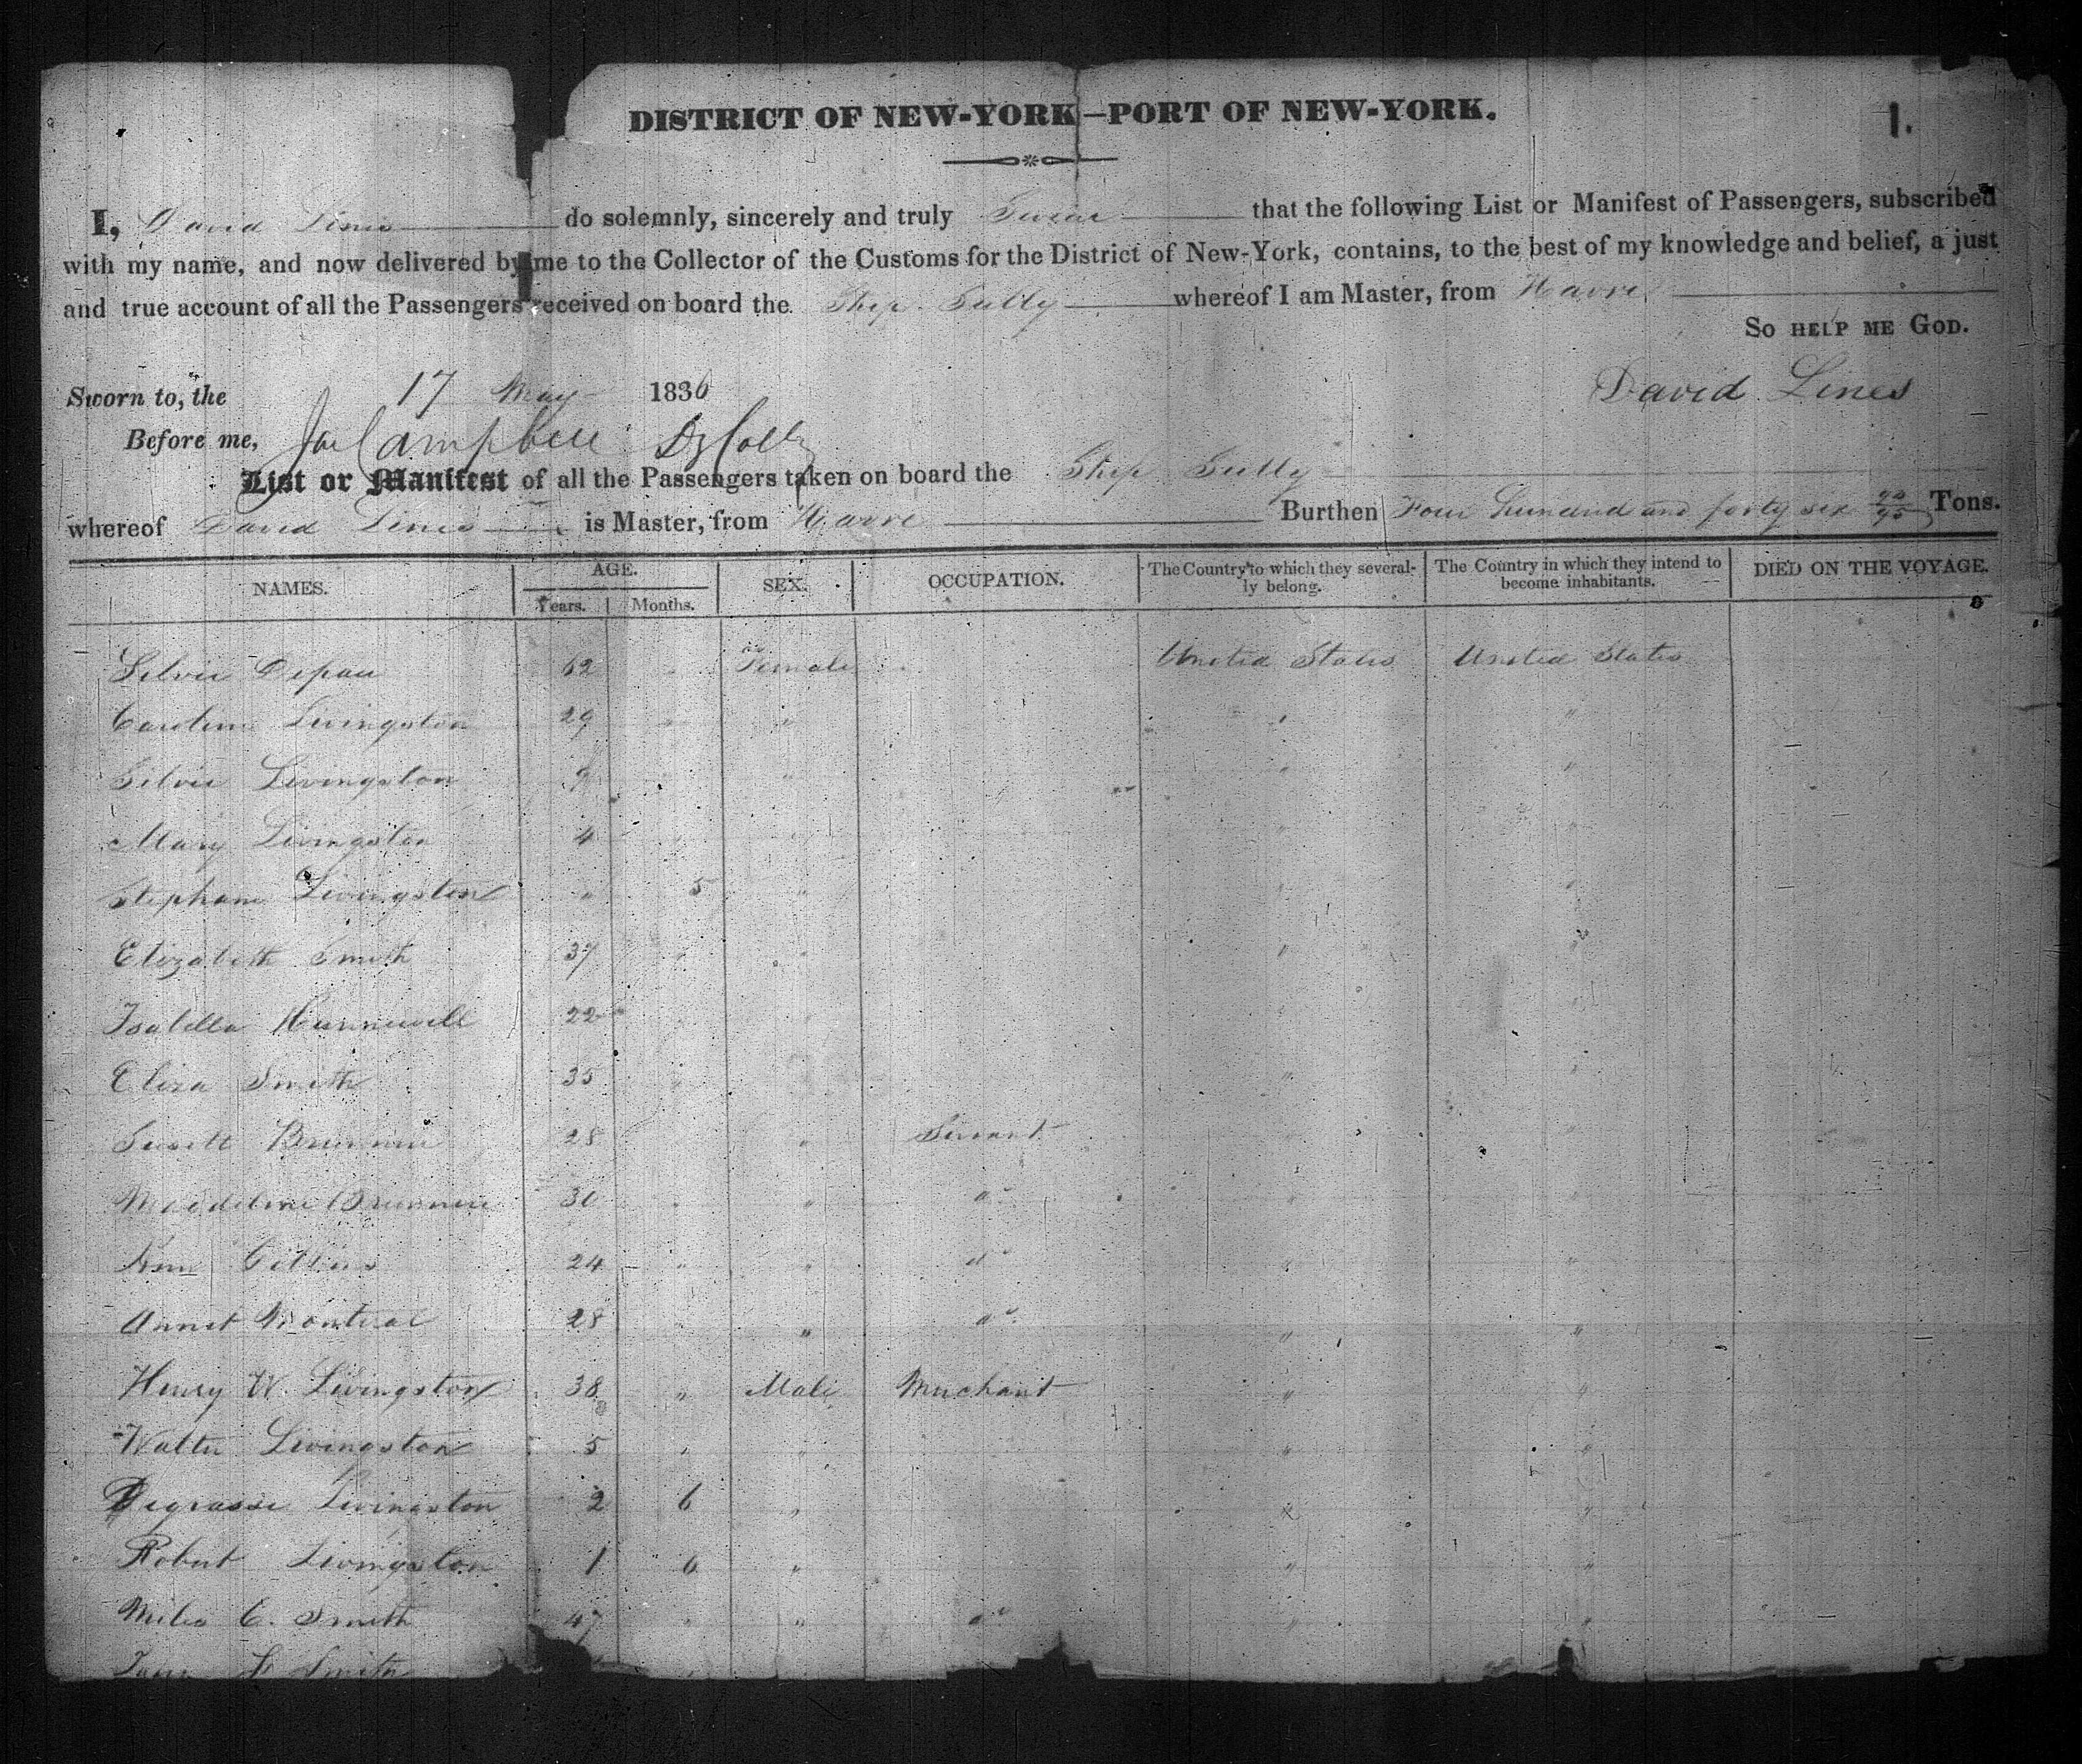 DISTRICT OF NEW-YORK—PORT OF NEW-YORK.
1.
I, David Lines do solemnly, sincerely and truly Swear that the following List or Manifest of Passengers, subscribed
with my name, and now delivered by me to the Collector of the Customs for the District of New-York, contains, to the best of my knowledge and belief, a just
and true account of all the Passengers received on board the Ship Sully whereof I am Master, from Havre
So HELP ME GOD.
Sworn to, the 17 May 1836 David Lines
Before me, Campbell
List or Manifest of all the Passengers taken on board the Ship Sully
whereof David Lines is Master, from Havre Burthen Four hundred and forty six Tons.
NAMES. AGE. SEX. OCCUPATION. The Country to which they several- The Country in which they intend to DIED ON THE VOYAGE.
Years. Months. ly belong. become inhabitants.
Silvie Depau 62 Female United States United States
Caroline Livingston 29 " " "
Silvie Livingston 9 " " "
Mary Livingston 4 " " " "
Stephanie Livingston " 5 " " "
Elizabeth Smith 37 " " " "
Isabella Hunnewell 22 " "
Eliza Smith 35 " " "
28 " Servant " "
Brunner 30 " " do " "
Ann 24 " " do " "
Annet Montreal 28 " do " "
Henry W. Livingston 38 " Male Merchant " "
Walter Livingston 5 " " " "
Degrasse Livingston 2 6 " " "
Robert Livingston 1 6 " " "
Miles C. Smith 47 " " do " "
Smith